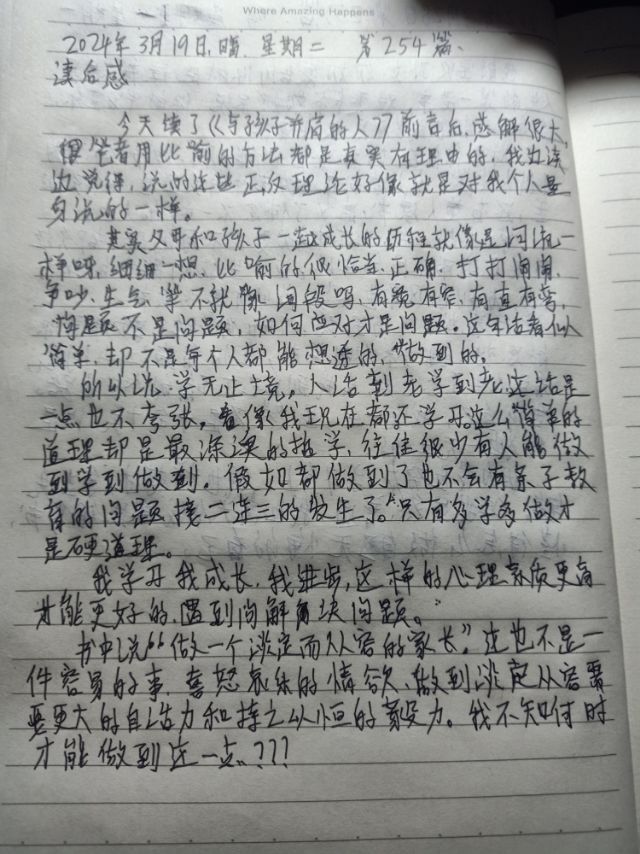 Where Amazing Happens
2024年3月19日,晴 星期二 第254篇、
读后感
今天读了《与孩子并肩的人》前言后,感解很大,
很 笔者用比喻的方法都是真实有理由的,我边读
边觉得,说的这些正反理论好像就是对我个人量
身说的一样。
其实父母和孩子一起成长的历程就像是河流一
样呀,细细一想,比喻的很恰当,正确,打打闹闹、
争吵、生气等不就像河段吗,有宽有窄,有直有弯,
问题不是问题,如何应对才是问题。这句话看似
简单,却不是每个人都能想透的,做到的。
所以说学无止境,人活到老学到老这话是
一点也不夸张,看像我现在都还学习这么简单的
道理却是最深溪的哲学,往往很少有人能做
到学到做到。假如都做到了也不会有亲子教
育的问题接二连三的发生了。“只有多学多做才
是硬道理。
我学习我成长,我进步,这样的心理素质更高
才能更好的,遇到问解解决问题。”
书中说“做一个淡定而从容的家长”这也不是一
件容易的事,喜怒哀乐的情欲、做到淡定从容需
要更大的自活力和持之以恒的毅力。我不知何时
才能做到这一点、???